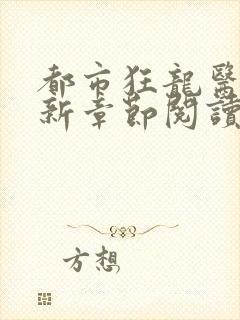 都市狂龍醫
新章節閱讀
方想